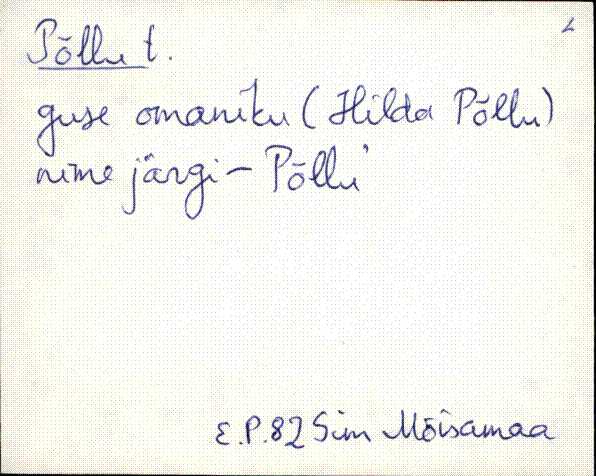 Põllu t.
omaniku (Hilda Põllu)
nime järgi – Põllu'
E.P. 82 Sim Mõisamaa